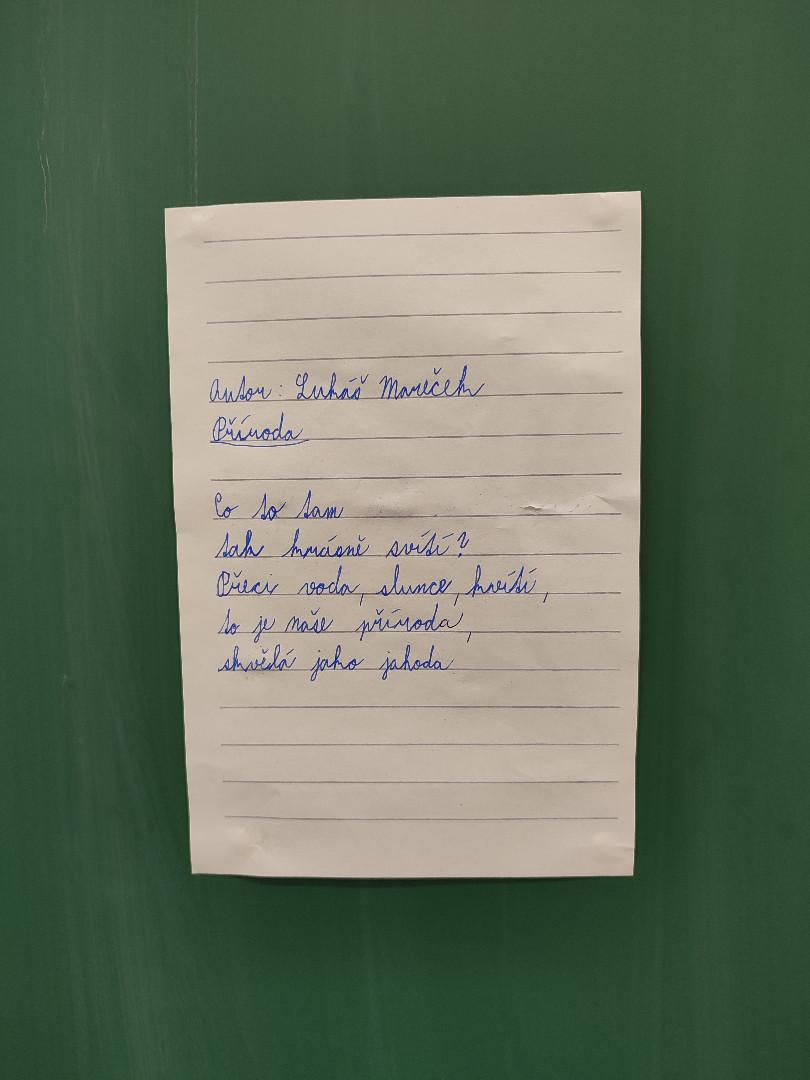 Autor: Lukáš Mareček
Příroda
Co to tam
tak krásně svítí?
Přeci voda, slunce, kvítí,
to je naše příroda,
skvělá jako jahoda